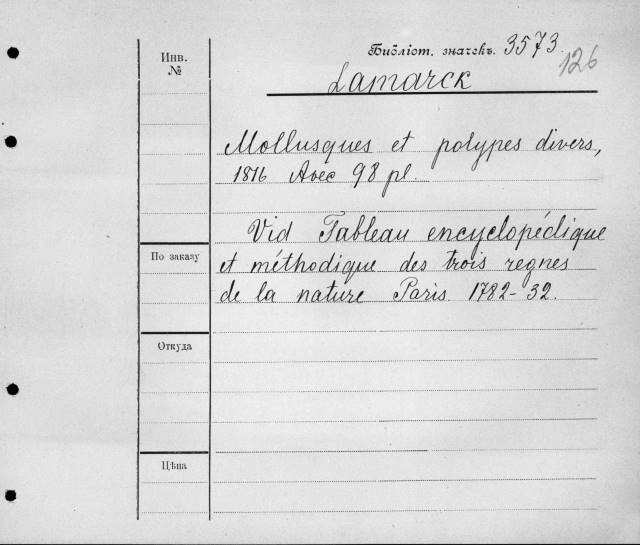 Инв.
№
Библіот. значекъ. 3573.
126
Lamarck
Mollusques et polypes divers,
1816 Avec 98 pl.
Vid Tableau encyclopédique
По заказу
et méthodique des trois regnes
de la nature Paris. 1782-32.
Откуда
Цѣна